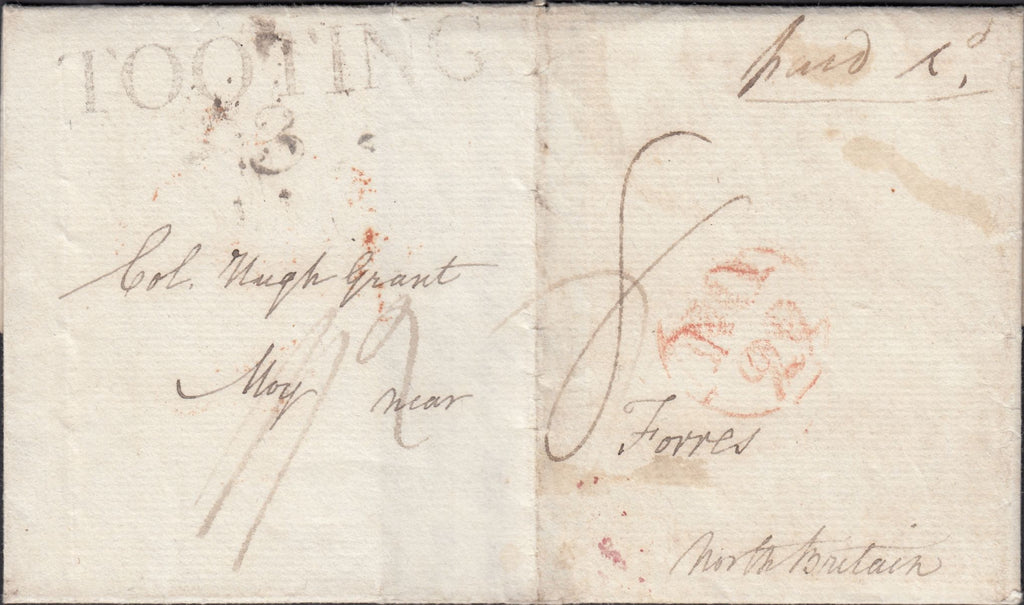 TOOTING
paid 1d
3
8
Col. Hugh Grant
Moy near
Forres
North Britain